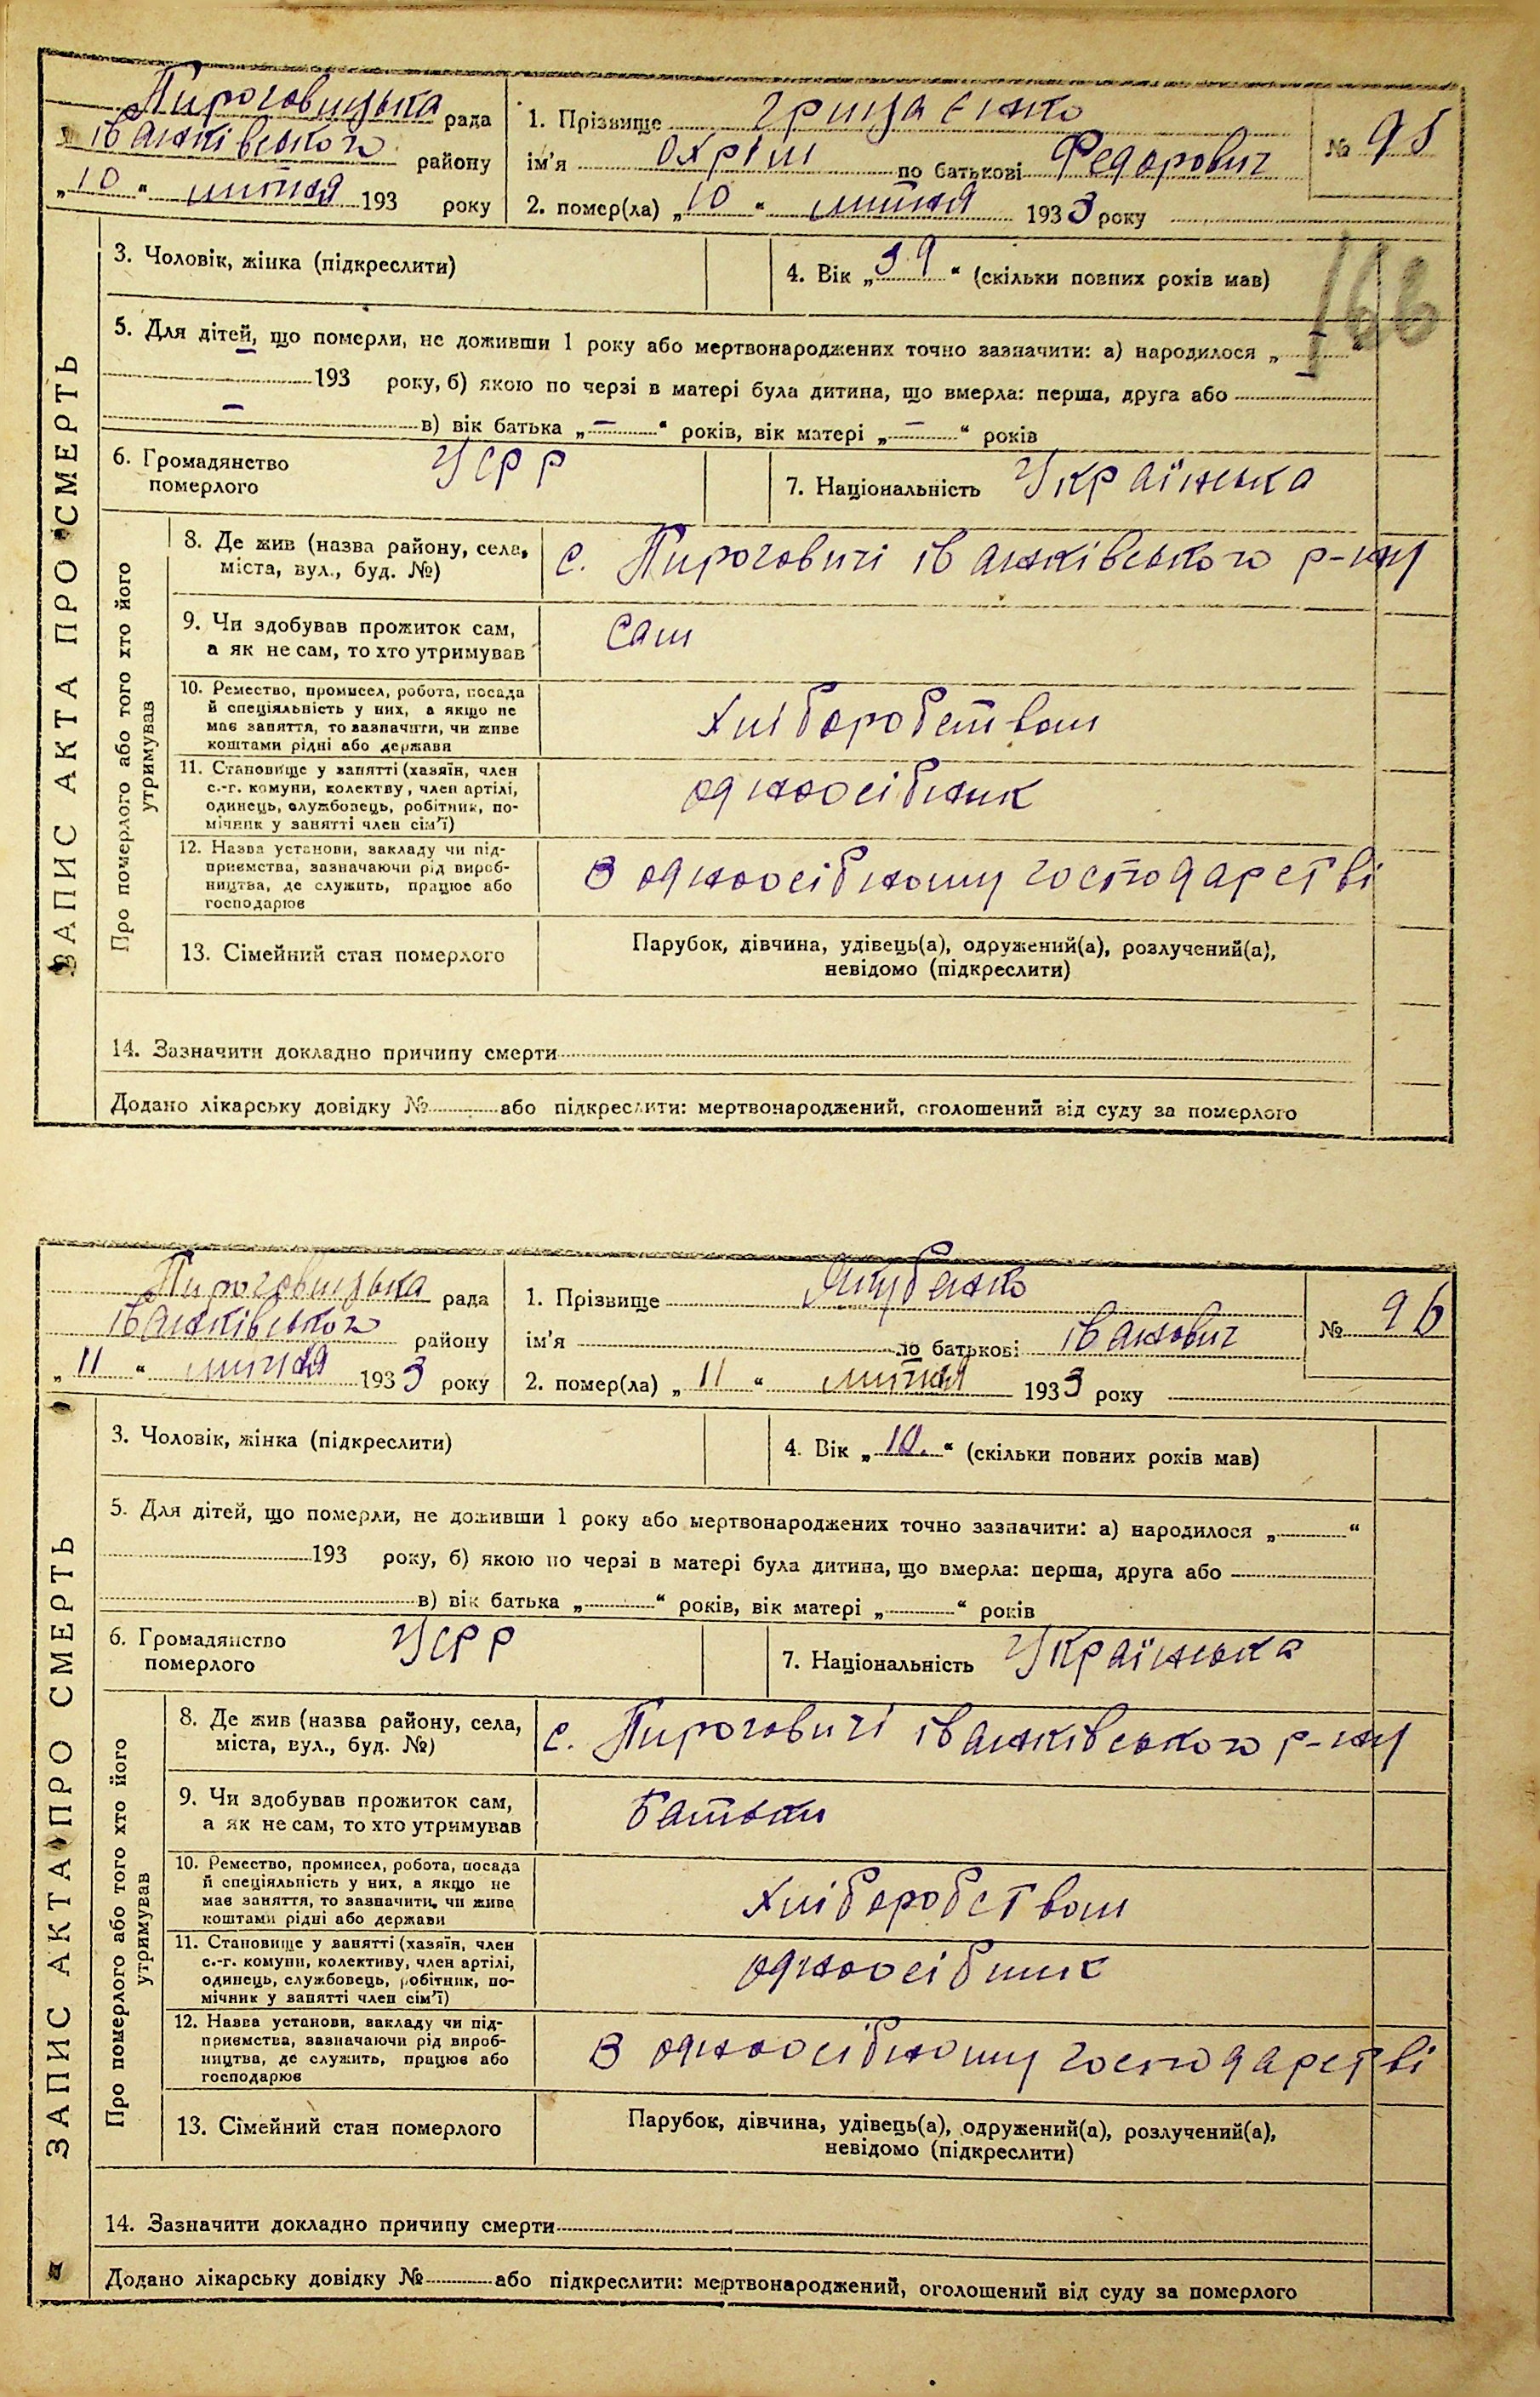 Пироговицька рада
Іванківського району
„10“ липня 193 року
1. Прізвище Грищаєнко
ім'я Охрім по батькові Федорович
2. помер(ла) „10“ липня 1933 року
№ 95
166
ЗАПИС АКТА ПРО СМЕРТЬ
3. Чоловік, жінка (підкреслити)
4. Вік „39“ (скільки повних років мав)
5. Для дітей, що померли, не доживши 1 року або мертвонароджених точно зазначити: а) народилося „–“
193 року, б) якою по черзі в матері була дитина, що вмерла: перша, друга або
– в) вік батька „–“ років, вік матері „–“ років
6. Громадянство
померлого
УСРР
7. Національність Українська
Про померлого або того хто його
утримував
8. Де жив (назва району, села,
міста, вул., буд. №)
с. Пироговичі Іванківського р-ну
9. Чи здобував прожиток сам,
а як не сам, то хто утримував
Сам
10. Ремество, промисел, робота, посада
й спеціяльність у них, а якщо не
має заняття, то зазначити, чи живе
коштами рідні або держави
Хліборобством
11. Становище у занятті (хазяїн, член
с.-г. комуни, колектву, член артілі,
одинець, службовець, робітник, по-
мічник у занятті член сім'ї)
одноосібник
12. Назва установи, закладу чи під-
приємства, зазначаючи рід вироб-
ництва, де служить, працює або
господарює
В одноосібному господарстві
13. Сімейний стан померлого
Парубок, дівчина, удівець(а), одружений(а), розлучений(а),
невідомо (підкреслити)
14. Зазначити докладно причину смерти
Додано лікарську довідку № або підкреслити: мертвонароджений, оголошений від суду за померлого
Пироговицька рада
Іванківського району
„11“ липня 1933 року
1. Прізвище Якубенко
ім'я по батькові Іванович
2. помер(ла) „11“ липня 1933 року
№ 96
ЗАПИС АКТА ПРО СМЕРТЬ
3. Чоловік, жінка (підкреслити)
4. Вік „10.“ (скільки повних років мав)
5. Для дітей, що померли, не доживши 1 року або мертвонароджених точно зазначити: а) народилося „ “
193 року, б) якою по черзі в матері була дитина, що вмерла: перша, друга або
в) вік батька „ “ років, вік матері „ “ років
6. Громадянство
померлого
УСРР
7. Національність Українська
Про померлого або того хто його
утримував
8. Де жив (назва району, села,
міста, вул., буд. №)
с. Пироговичі Іванківського р-ну
9. Чи здобував прожиток сам,
а як не сам, то хто утримував
Батьки
10. Ремество, промисел, робота, посада
й спеціяльність у них, а якщо не
має заняття, то зазначити, чи живе
коштами рідні або держави
Хліборобством
11. Становище у занятті (хазяїн, член
с.-г. комуни, колективу, член артілі,
одинець, службовець, робітник, по-
мічник у занятті член сім'ї)
одноосібник
12. Назва установи, закладу чи під-
приємства, зазначаючи рід вироб-
ництва, де служить, працює або
господарює
В одноосібному господарстві
13. Сімейний стан померлого
Парубок, дівчина, удівець(а), одружений(а), розлучений(а),
невідомо (підкреслити)
14. Зазначити докладно причину смерти
Додано лікарську довідку № або підкреслити: мертвонароджений, оголошений від суду за померлого